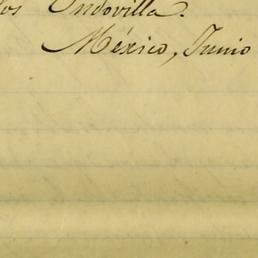 os Undovilla.
México, Junio